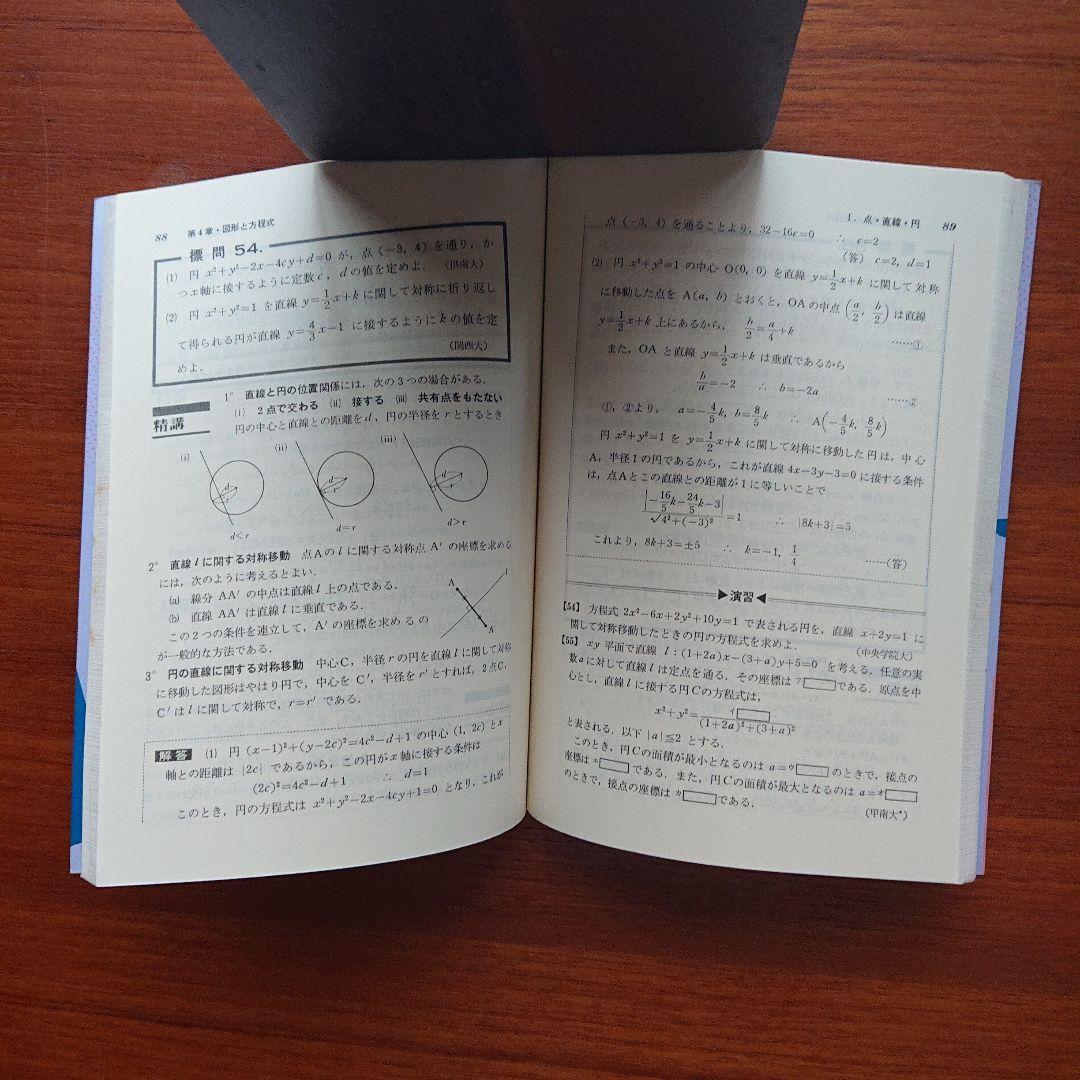 88 第4章・図形と方程式
標 問 54.
(1) 円 x²+y²−2x−4cy+d=0 が，点 (−3, 4) を通り，か
つ x 軸に接するように定数 c，d の値を定めよ． (摂南大)
(2) 円 x²+y²=1 を直線 y=1/2x+k に関して対称に折り返し
て得られる円が直線 y=4/3x−1 に接するように k の値を定
めよ． (関西大)
精講
1° 直線と円の位置関係には，次の3つの場合がある．
(i) 2点で交わる (ii) 接する (iii) 共有点をもたない
円の中心と直線との距離を d，円の半径を r とするとき
(i) (ii) (iii)
d r d r d r
d<r d=r d>r
2° 直線 l に関する対称移動 点Aの l に関する対称点 A′ の座標を求める
には，次のように考えるとよい．
(a) 線分 AA′ の中点は直線 l 上の点である．
(b) 直線 AA′ は直線 l に垂直である．
この2つの条件を連立して，A′ の座標を求めるの
が一般的な方法である．
A l
A
3° 円の直線に関する対称移動 中心C，半径 r の円を直線 l に関して対称
に移動した図形はやはり円で，中心を C′，半径を r′ とすれば，2点C，
C′ は l に関して対称で，r=r′ である．
解答 (1) 円 (x−1)²+(y−2c)²=4c²−d+1 の中心 (1, 2c) と x
軸との距離は |2c| であるから，この円が x 軸に接する条件は
(2c)²=4c²−d+1 ∴ d=1
このとき，円の方程式は x²+y²−2x−4cy+1=0 となり，これが
1. 点・直線・円 89
点 (−3, 4) を通ることより，32−16c=0 ∴ c=2
(答) c=2, d=1
(2) 円 x²+y²=1 の中心 O(0, 0) を直線 y=1/2x+k に関して対称
に移動した点を A(a, b) とおくと，OAの中点 (a/2, b/2) は直線
y=1/2x+k 上にあるから， b/2=a/4+k ……①
また，OA と直線 y=1/2x+k は垂直であるから
b/a=−2 ∴ b=−2a ……②
①，②より， a=−4/5k, b=8/5k ∴ A(−4/5k, 8/5k)
円 x²+y²=1 を y=1/2x+k に関して対称に移動した円は，中心
A，半径1の円であるから，これが直線 4x−3y−3=0 に接する条件
は，点Aとこの直線との距離が1に等しいことで
|−16/5k−24/5k−3|/√4²+(−3)²=1 ∴ |8k+3|=5
これより，8k+3=±5 ∴ k=−1, 1/4 ……(答)
▶演習◀
【54】 方程式 2x²−6x+2y²+10y=1 で表される円を，直線 x+2y=1 に
関して対称移動したときの円の方程式を求めよ． (中央学院大)
【55】 xy 平面で直線 l：(1+2a)x−(3+a)y+5=0 を考える．任意の実
数 a に対して直線 l は定点を通る．その座標は ア□である．原点を中
心とし，直線 l に接する円Cの方程式は，
x²+y²=イ□/(1+2a)²+(3+a)²
と表される．以下 |a|≦2 とする．
このとき，円Cの面積が最小となるのは a=ウ□ のときで，接点の
座標は エ□ である．また，円Cの面積が最大となるのは a=オ□
のときで，接点の座標は カ□である． (甲南大*)